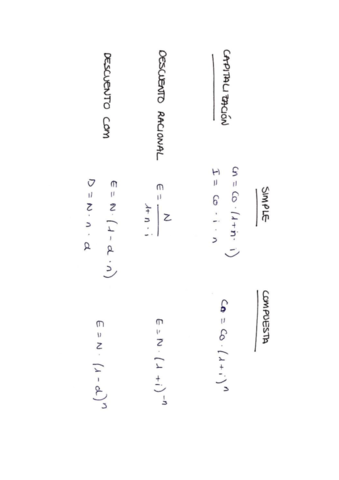 SIMPLE
COMPUESTA
CAPITALIZACIÓN
Cn = Co · (1 + n · i)
I = Co · i · n
Cn = Co · (1 + i)^n
DESCUENTO RACIONAL
E = N / 1 + n · i
E = N · (1 + i)^-n
DESCUENTO COM
E = N · (1 - d · n)
D = N · n · d
E = N · (1 - d)^n